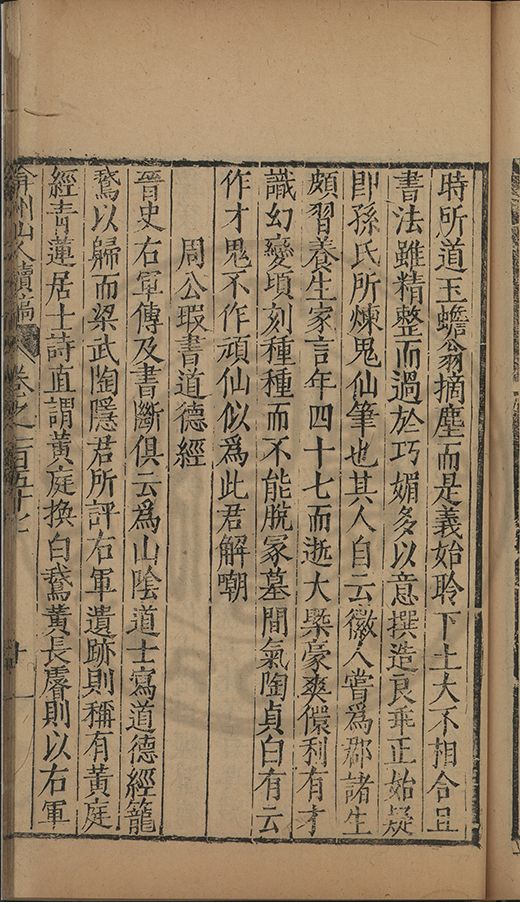 時所道玉蟾翁摘塵而是義始聆下土大不相合且
書法雖精整而過於巧媚多以意撰造良乖正始疑
即孫氏所煉鬼仙筆也其人自云徽人嘗爲郡諸生
頗習養生家言年四十七而逝大槩豪爽儇利有才
識幻變頃刻種種而不能脫冢墓間氣陶貞白有云
作才鬼不作頑仙似爲此君解嘲
周公瑕書道德經
晉史右軍傳及書斷俱云爲山陰道士寫道德經籠
鵞以歸而梁武陶隱君所評右軍遺跡則稱有黃庭
經青蓮居士詩直謂黃庭換白鵞黃長睿則以右軍
弇州山人續稿 卷之一百五十七 十